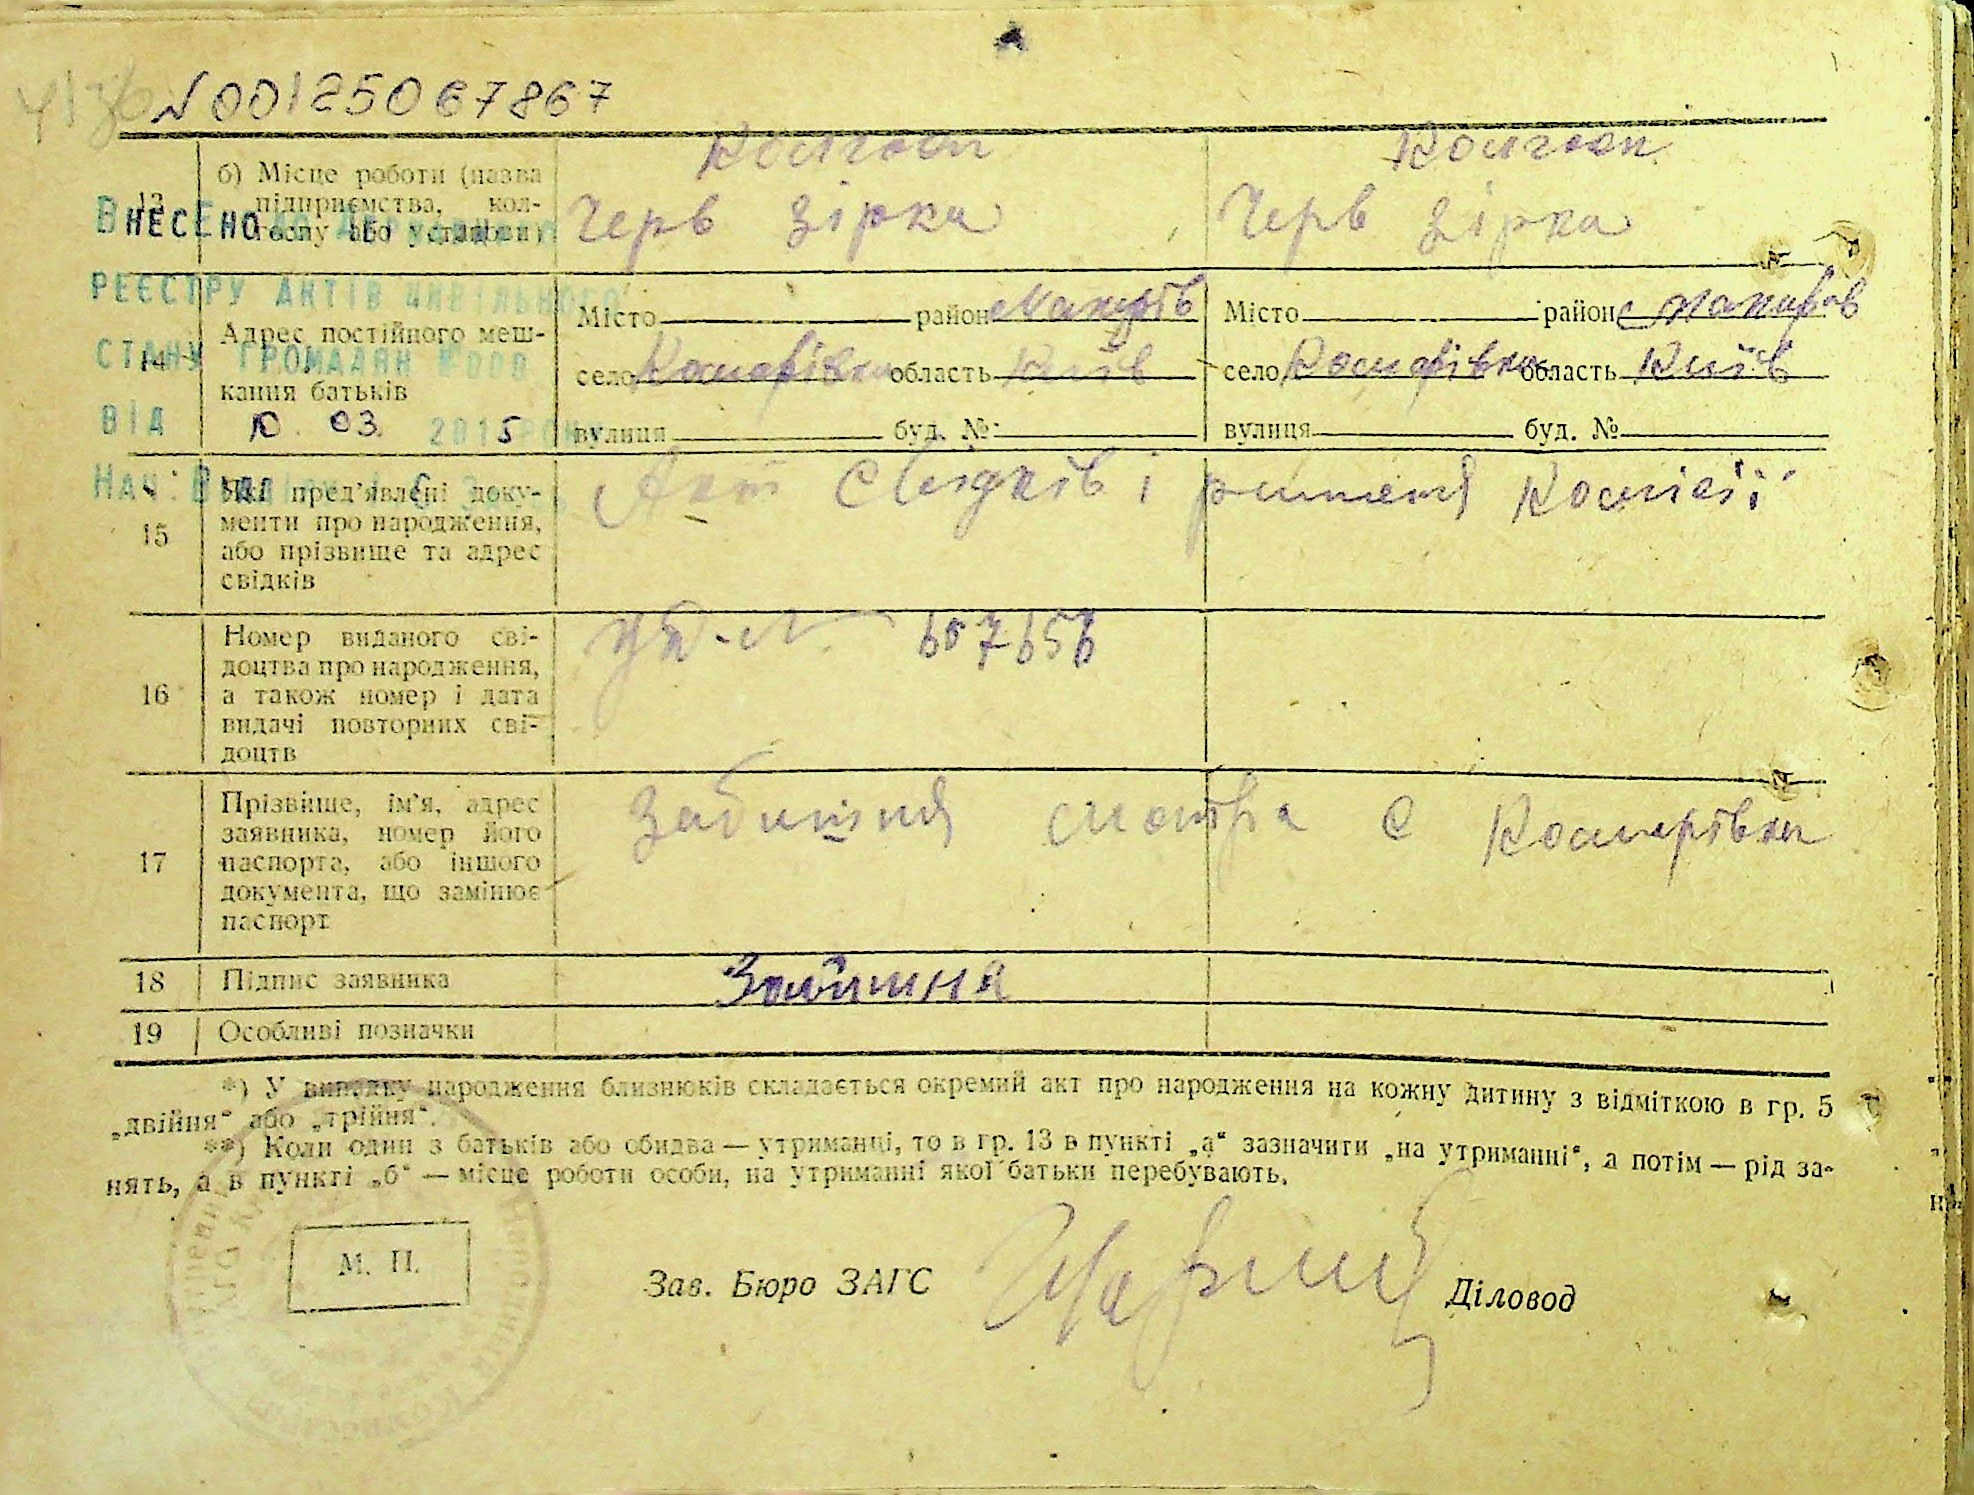 N00125067867
Колгосп Колгосп
13 б) Місце роботи (назва
підприємства, кол-
госпу або установи)
Черв зірка Черв зірка
ВНЕСЕНО ДО ДЕРЖАВНОГО
РЕЄСТРУ АКТІВ ЦИВІЛЬНОГО
СТАНУ ГРОМАДЯН
ВІД 10. 03. 2015 РОКУ
НАЧ. ВІДДІЛУ
14 Адрес постійного меш-
кання батьків
Місто район Макарів Місто район Макарів
село область Київ село область Київ
вулиця буд. № вулиця буд. №
15 Які пред'явлені доку-
менти про народження,
або прізвище та адрес
свідків
Акт свідків і рішення комісії
16 Номер виданого сві-
доцтва про народження,
а також номер і дата
видачі повторних сві-
доцтв
657656
17 Прізвище, ім'я, адрес
заявника, номер його
паспорта, або іншого
документа, що замінює
паспорт
с
18 Підпис заявника
19 Особливі позначки
*) У випадку народження близнюків складається окремий акт про народження на кожну дитину з відміткою в гр. 5
„двійня“ або „трійня“.
**) Коли один з батьків або обидва — утриманці, то в гр. 13 в пункті „а“ зазначити „на утриманні“, а потім — рід за-
нять, а в пункті „б“ — місце роботи особи, на утриманні якої батьки перебувають.
М. П.
Зав. Бюро ЗАГС Діловод